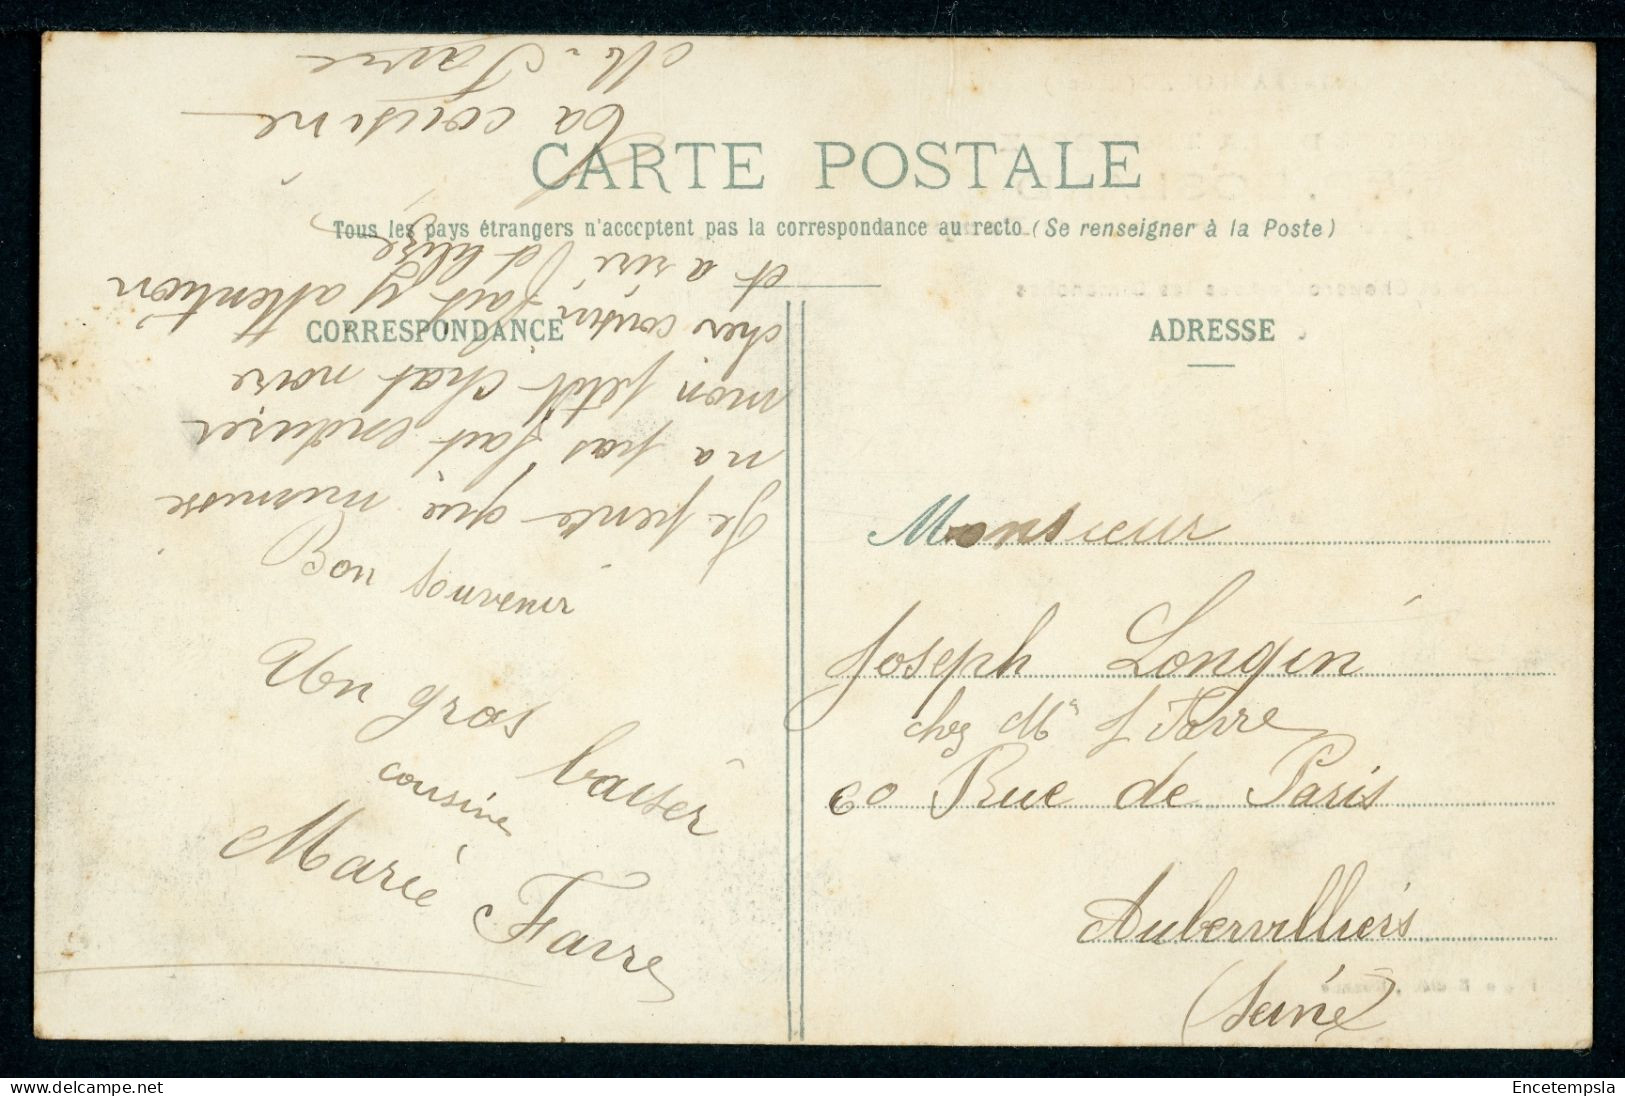 CARTE POSTALE
Tous les pays étrangers n'acceptent pas la correspondance au recto (Se renseigner à la Poste)
CORRESPONDANCE
Je pense que
na pas fait endurer
mon petit chat noire
cher cousin fait y attention
et a
ta cousine
M. Favre
Bon souvenir
Un gros baiser
cousine
Marie Favre
ADRESSE
Monsieur
Joseph Longin
chez Mr J Favre
60 Rue de Paris
Aubervilliers
(Seine)
Encetempsla